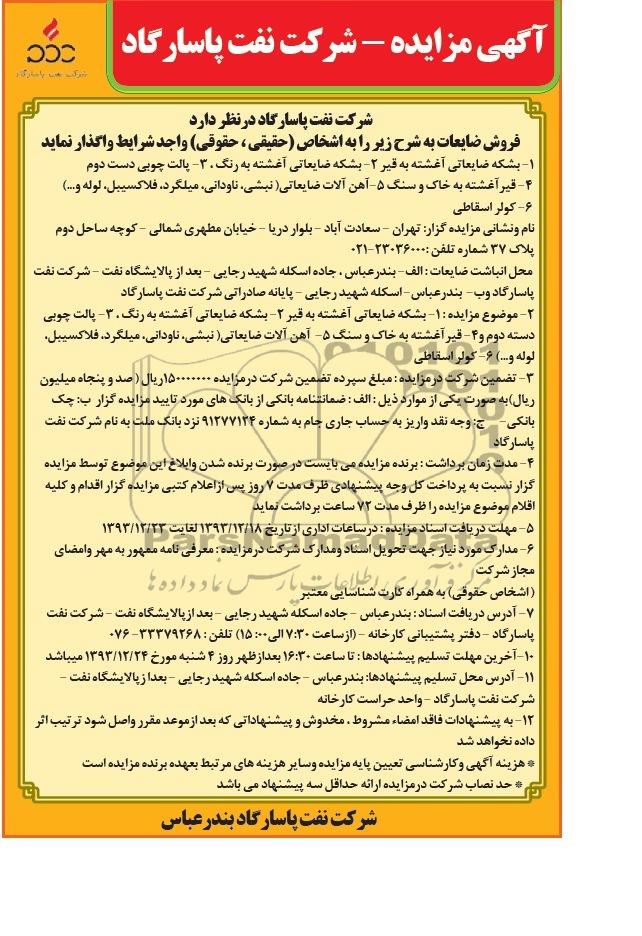 آگهی مزایده - شرکت نفت پاسارگاد
شرکت نفت پاسارگاد
شرکت نفت پاسارگاد درنظر دارد
فروش ضایعات به شرح زیر را به اشخاص (حقیقی ، حقوقی) واجد شرایط واگذار نماید
۱- بشکه ضایعاتی آغشته به قیر ۲- بشکه ضایعاتی آغشته به رنگ ، ۳- پالت چوبی دست دوم
۴- قیر آغشته به خاک و سنگ ۵-آهن آلات ضایعاتی( نبشی، ناودانی، میلگرد، فلاکسیبل، لوله و...)
۶- کولر اسقاطی
نام ونشانی مزایده گزار: تهران - سعادت آباد - بلوار دریا - خیابان مطهری شمالی - کوچه ساحل دوم
پلاک ۳۷ شماره تلفن :۲۳۰۳۶۰۰۰-۰۲۱
محل انباشت ضایعات : الف- بندرعباس ، جاده اسکله شهید رجایی - بعد از پالایشگاه نفت - شرکت نفت
پاسارگاد وب- بندرعباس- اسکله شهید رجایی - پایانه صادراتی شرکت نفت پاسارگاد
۲- موضوع مزایده : ۱- بشکه ضایعاتی آغشته به قیر ۲- بشکه ضایعاتی آغشته به رنگ ، ۳- پالت چوبی
دسته دوم و۴- قیر آغشته به خاک و سنگ ۵- آهن آلات ضایعاتی( نبشی، ناودانی، میلگرد، فلاکسیبل،
لوله و...) ۶- کولر اسقاطی
۳- تضمین شرکت درمزایده : مبلغ سپرده تضمین شرکت درمزایده ۱۵۰۰۰۰۰۰۰ریال ( صد و پنجاه میلیون
ریال)به صورت یکی از موارد ذیل : الف : ضمانتنامه بانکی از بانک های مورد تایید مزایده گزار ب: چک
بانکی- ج: وجه نقد واریز به حساب جاری جام به شماره ۹۱۲۷۷۱۲۴ نزد بانک ملت به نام شرکت نفت
پاسارگاد
۴- مدت زمان برداشت : برنده مزایده می بایست در صورت برنده شدن وابلاغ این موضوع توسط مزایده
گزار نسبت به پرداخت کل وجه پیشنهادی ظرف مدت ۷ روز پس ازاعلام کتبی مزایده گزار اقدام و کلیه
اقلام موضوع مزایده را ظرف مدت ۷۲ ساعت برداشت نماید
۵- مهلت دریافت اسناد مزایده : درساعات اداری از تاریخ ۱۳۹۳/۱۲/۱۸ لغایت ۱۳۹۳/۱۲/۲۳
۶- مدارک مورد نیاز جهت تحویل اسناد ومدارک شرکت درمزایده : معرفی نامه ممهور به مهر وامضای
مجاز شرکت
( اشخاص حقوقی) به همراه کارت شناسایی معتبر
۷- آدرس دریافت اسناد : بندرعباس - جاده اسکله شهید رجایی - بعد ازپالایشگاه نفت - شرکت نفت
پاسارگاد - دفتر پشتیبانی کارخانه - (ازساعت ۷:۳۰ الی۱۵:۰۰) تلفن : ۳۳۳۷۹۲۶۸- ۰۷۶
۱۰-آخرین مهلت تسلیم پیشنهادها : تا ساعت ۱۶:۳۰ بعدازظهر روز ۴ شنبه مورخ ۱۳۹۳/۱۲/۲۴ میباشد
۱۱- آدرس محل تسلیم پیشنهادها: بندرعباس - جاده اسکله شهید رجایی - بعداز پالایشگاه نفت -
شرکت نفت پاسارگاد - واحد حراست کارخانه
۱۲- به پیشنهادات فاقد امضاء مشروط ، مخدوش و پیشنهاداتی که بعد ازموعد مقرر واصل شود ترتیب اثر
داده نخواهد شد
* هزینه آگهی وکارشناسی تعیین پایه مزایده وسایر هزینه های مرتبط بعهده برنده مزایده است
* حد نصاب شرکت درمزایده ارائه حداقل سه پیشنهاد می باشد
شرکت نفت پاسارگاد بندرعباس
ParsNamadData
مرکز فرآوری اطلاعات پارس نماد داده ها